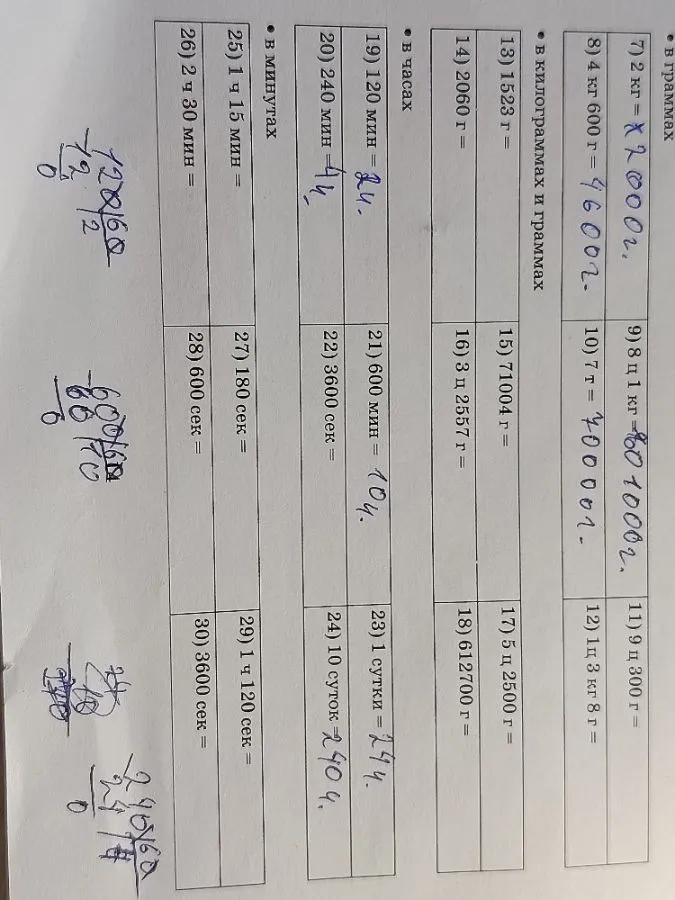 • в граммах
7) 2 кг = 2000г.
9) 8 ц 1 кг = 801000г.
11) 9 ц 300 г =
8) 4 кг 600 г = 4600г.
10) 7 т = 700000г.
12) 1ц 3 кг 8 г =
• в килограммах и граммах
13) 1523 г =
15) 71004 г =
17) 5 ц 2500 г =
14) 2060 г =
16) 3 ц 2557 г =
18) 612700 г =
• в часах
19) 120 мин = 2ч.
21) 600 мин = 10ч.
23) 1 сутки = 24ч.
20) 240 мин = 4ч.
22) 3600 сек =
24) 10 суток = 240ч.
• в минутах
25) 1 ч 15 мин =
27) 180 сек =
29) 1 ч 120 сек =
26) 2 ч 30 мин =
28) 600 сек =
30) 3600 сек =
120 60
12 2
0
600 60
60 10
0
240 60
24
0